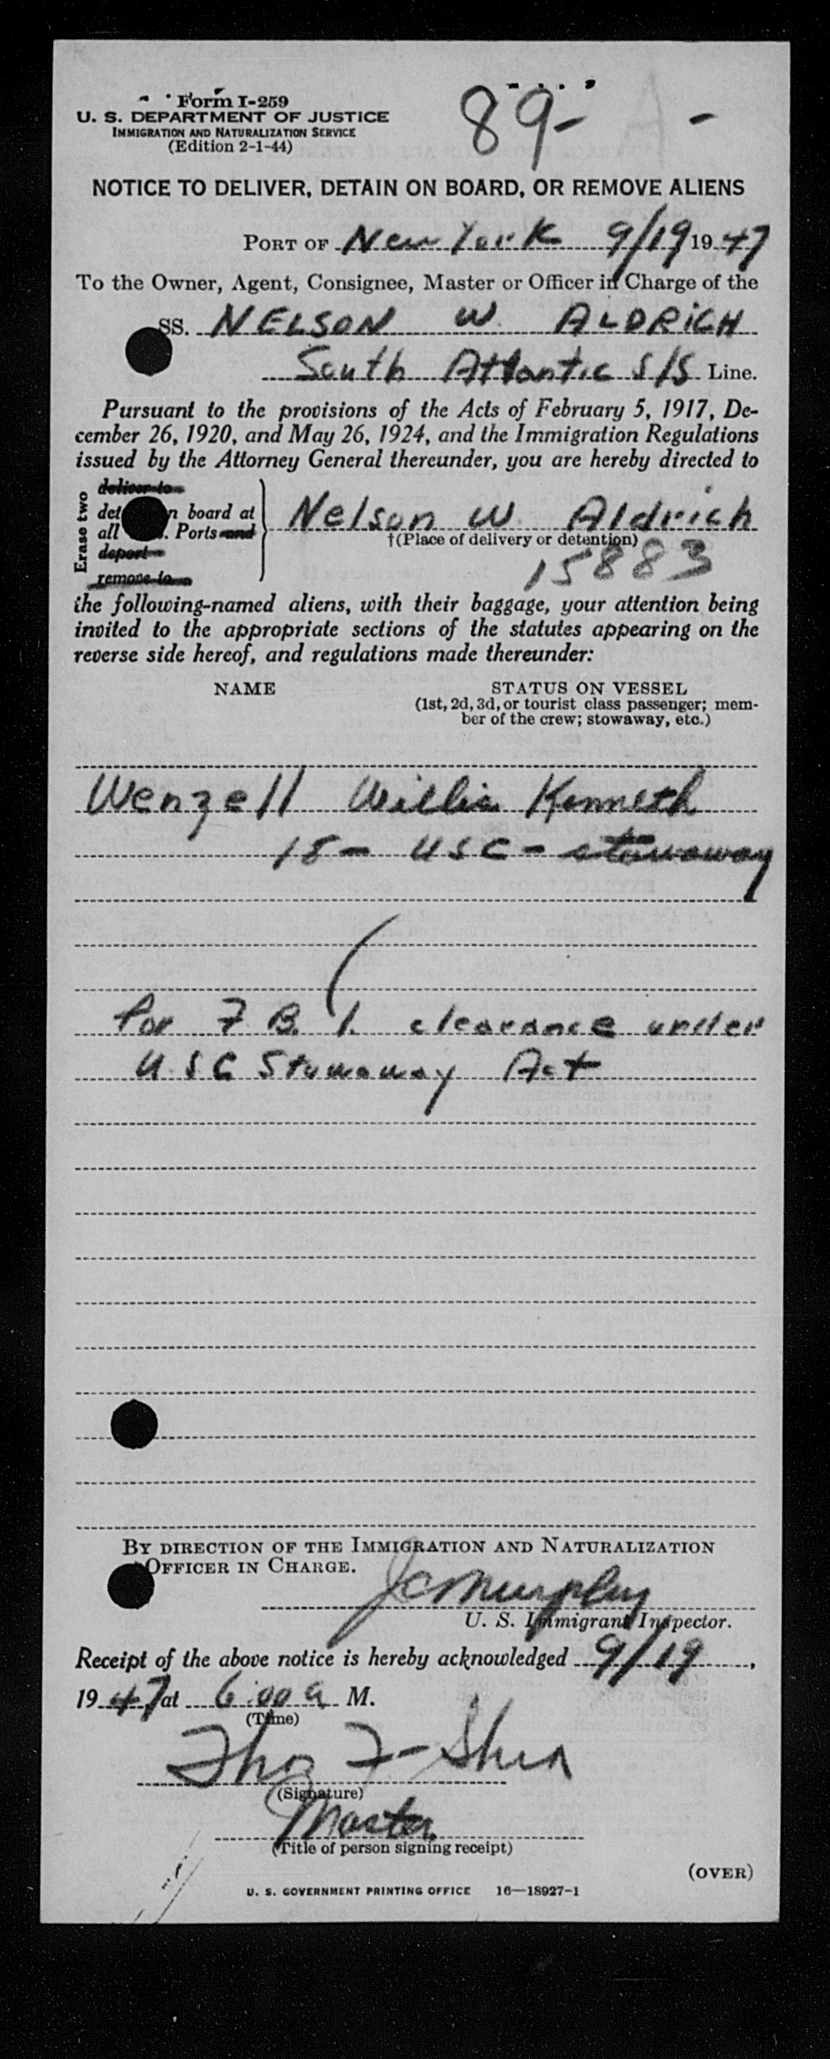 Form I-259
U. S. DEPARTMENT OF JUSTICE
IMMIGRATION AND NATURALIZATION SERVICE
(Edition 2-1-44)
89-
NOTICE TO DELIVER, DETAIN ON BOARD, OR REMOVE ALIENS
PORT OF New York 9/19 1947
To the Owner, Agent, Consignee, Master or Officer in Charge of the
SS. NELSON W ALDRICH
South Atlantic S/S Line.
Pursuant to the provisions of the Acts of February 5, 1917, De-
cember 26, 1920, and May 26, 1924, and the Immigration Regulations
issued by the Attorney General thereunder, you are hereby directed to
Erase two
deliver to
det n board at
all . Ports and
deport
remove to
Nelson W. Aldrich
†(Place of delivery or detention)
15883
the following-named aliens, with their baggage, your attention being
invited to the appropriate sections of the statutes appearing on the
reverse side hereof, and regulations made thereunder:
NAME STATUS ON VESSEL
(1st, 2d, 3d, or tourist class passenger; mem-
ber of the crew; stowaway, etc.)
Wenzell Kenneth
18 - USC - stowaway
for F B I. clearance under
U.S.C Stowaway Act
BY DIRECTION OF THE IMMIGRATION AND NATURALIZATION
OFFICER IN CHARGE.
JC Murphy
U. S. Immigrant Inspector.
Receipt of the above notice is hereby acknowledged 9/19,
1947 at 6:00 a M.
(Time)
Tho F-Shea
(Signature)
Master
(Title of person signing receipt)
(OVER)
U. S. GOVERNMENT PRINTING OFFICE 16—18927-1